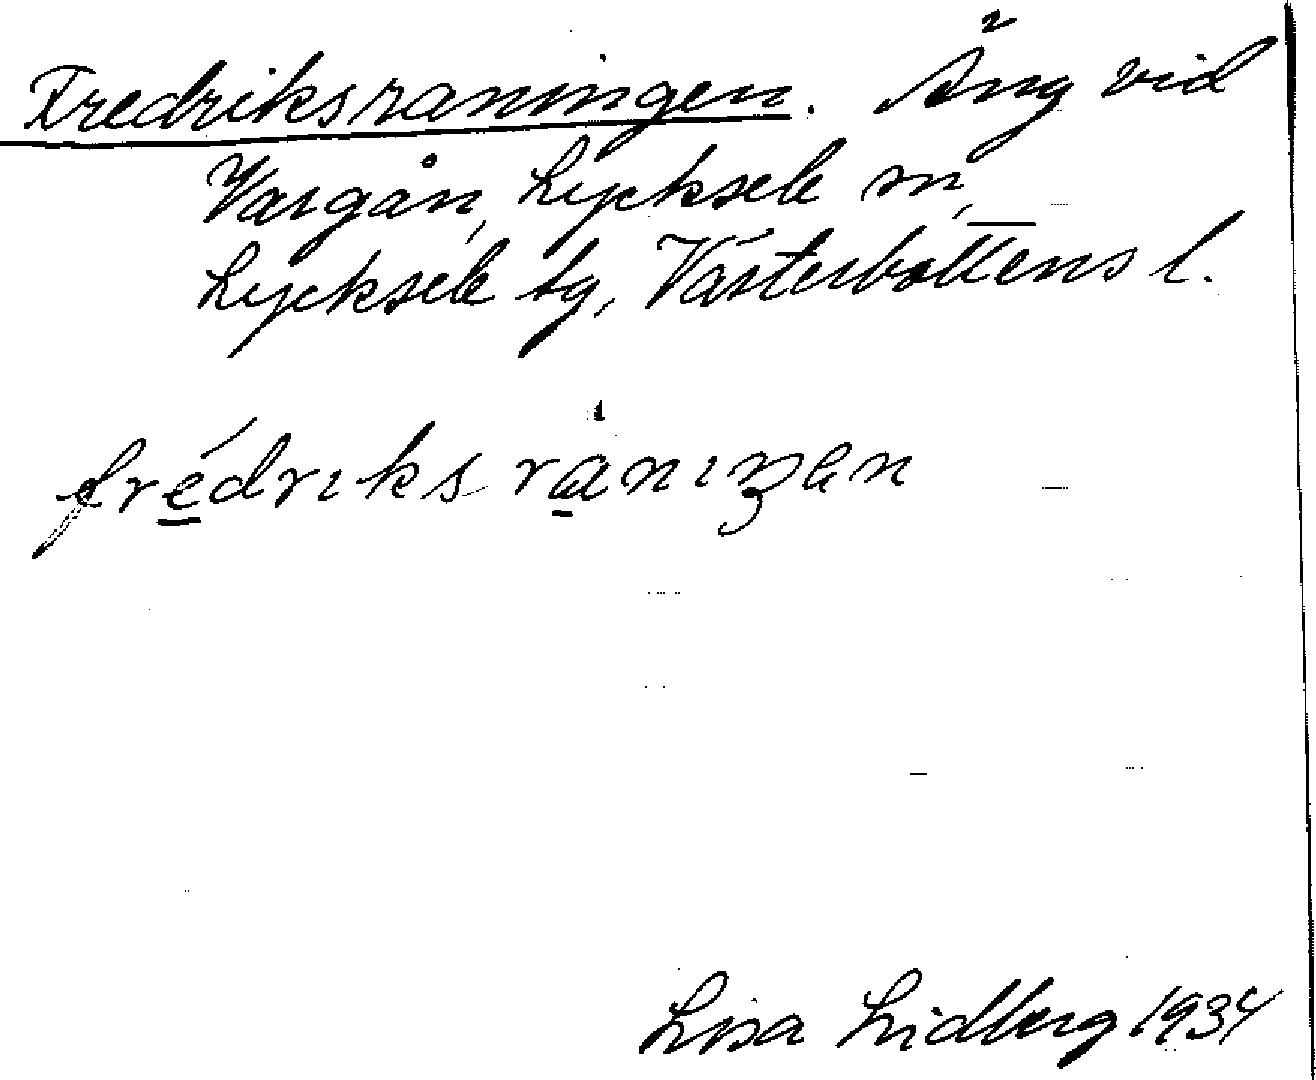 Fredriksraningen. Äng vid
Vargån, Lycksele sn,
Lycksele tg, Västerbottens l.
frédriks ràniŋen
Lisa Lidberg 1934